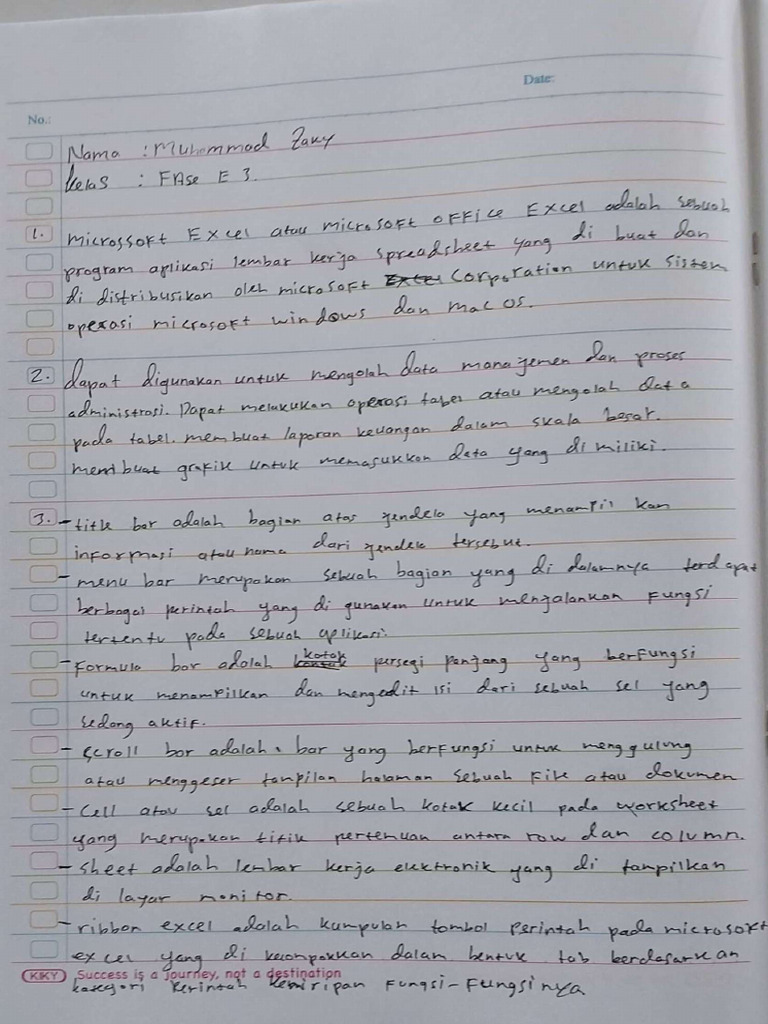 Date:
No.:
Nama : Muhammad Zaky
Kelas : FAse E 3.
1. microssoft Excel atau microsoft office Excel adalah sebuah
program aplikasi lembar kerja spreadsheet yang di buat dan
di distribusikan oleh microsoft Corporation untuk sistem
operasi microsoft windows dan mac os.
2. dapat digunakan untuk mengolah data manajemen dan proses
administrasi. Dapat melakukan operasi tabel atau mengolah data
pada tabel. membuat laporan keuangan dalam skala besar.
membuat grafik untuk memasukkan data yang di miliki.
3. - title bar adalah bagian atas jendela yang menampil kan
informasi atau nama dari jendela tersebut.
- menu bar merupakan sebuah bagian yang di dalamnya terdapat
berbagai perintah yang di gunakan untuk menjalankan fungsi
tertentu pada sebuah aplikasi.
- Formula bar adalah kotak persegi panjang yang berfungsi
untuk menampilkan dan mengedit isi dari sebuah sel yang
sedang aktif.
- scroll bar adalah bar yang berfungsi untuk menggulung
atau menggeser tampilan halaman sebuah file atau dokumen
- Cell atau sel adalah sebuah kotak kecil pada worksheet
yang merupakan titik pertemuan antara row dan column.
- sheet adalah lembar kerja elektronik yang di tampilkan
di layar monitor.
- ribbon excel adalah kumpulan tombol perintah pada microsoft
excel yang di kelompokkan dalam bentuk tab berdasarkan
KIKY Success is a journey, not a destination
kategori perintah kemiripan fungsi-fungsinya